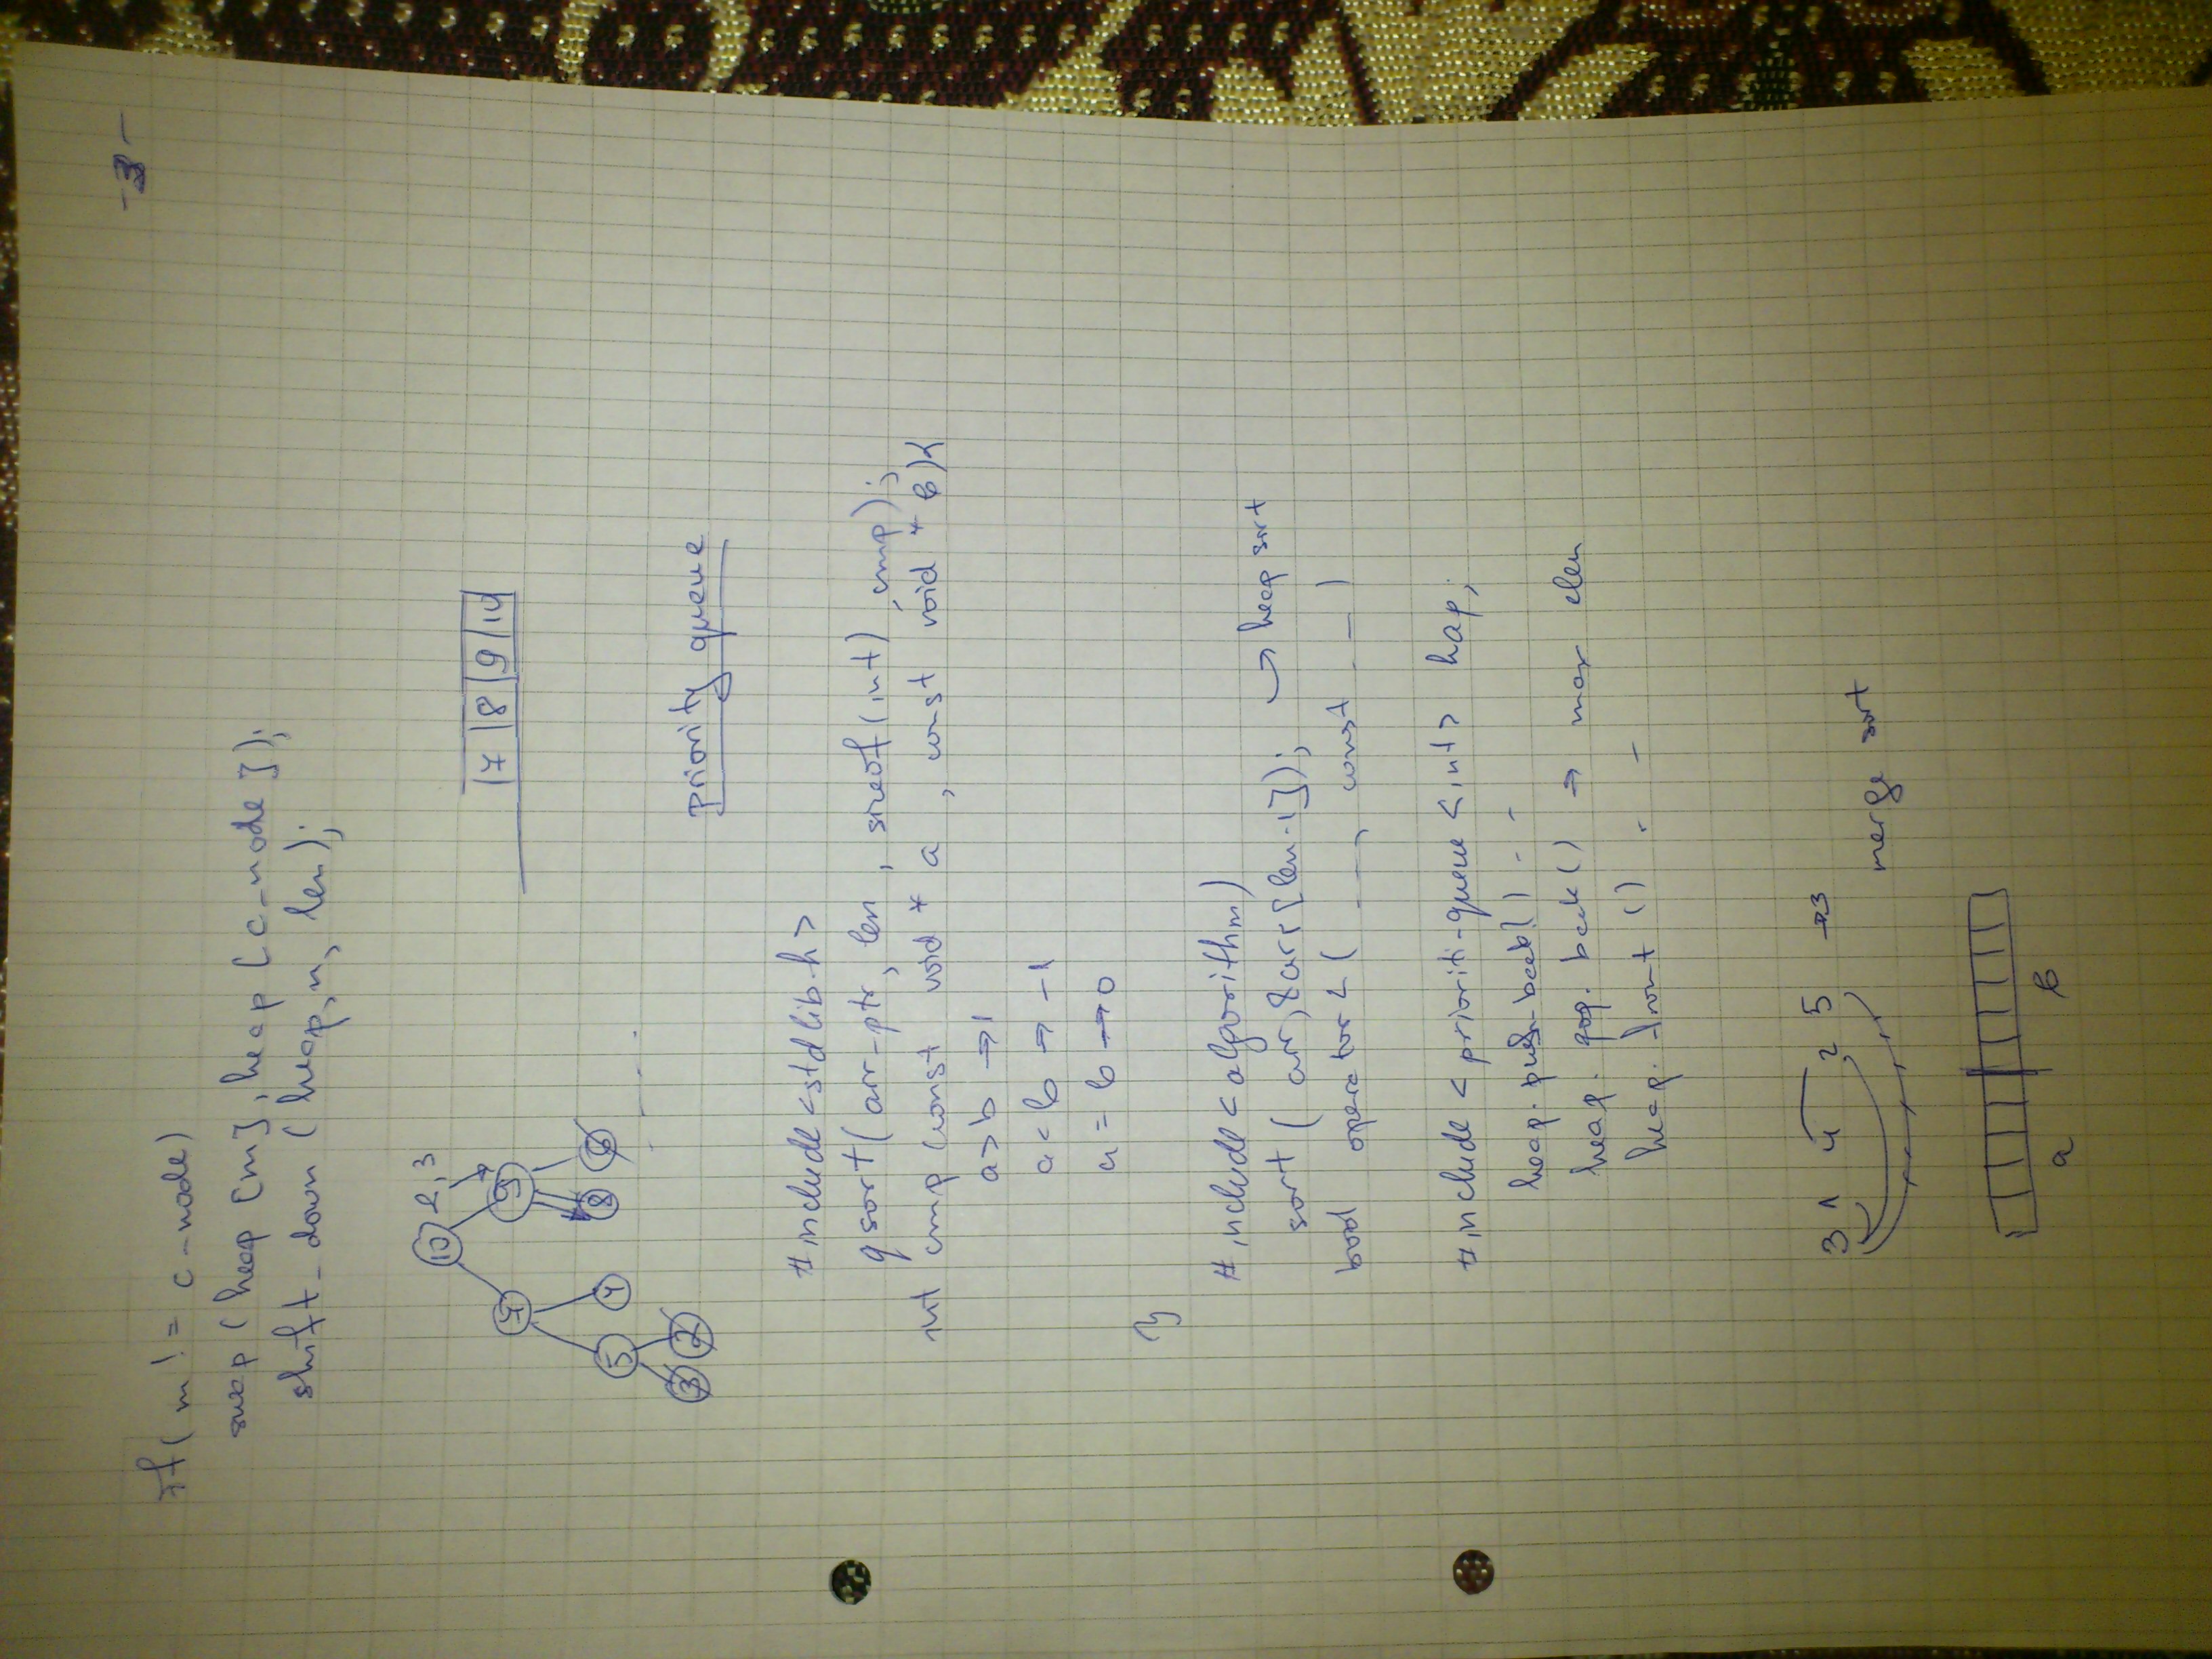 -3-
if ( m != c-node)
swap ( heap [m], heap [c-node]);
shift-down ( heap, m, len);
10 2, 3
9
8 6
5 4
3 2
7 8 9 14
priority queue
#include <stdlib.h>
qsort( arr-ptr, len, sizeof(int), cmp);
int cmp (const void * a, const void * b){
a>b → 1
a<b → -1
a=b → 0
}
#include <algorithm)
sort ( arr, &arr[len-1]); → heap sort
bool operator < ( _ _ _, const _ _ )
#include <prioriti-queue <int> hap;
heap. push-back()
heap. pop. back() → max elem
heap. front ()
3 1 4 2 5 → 3
merge sort
a b